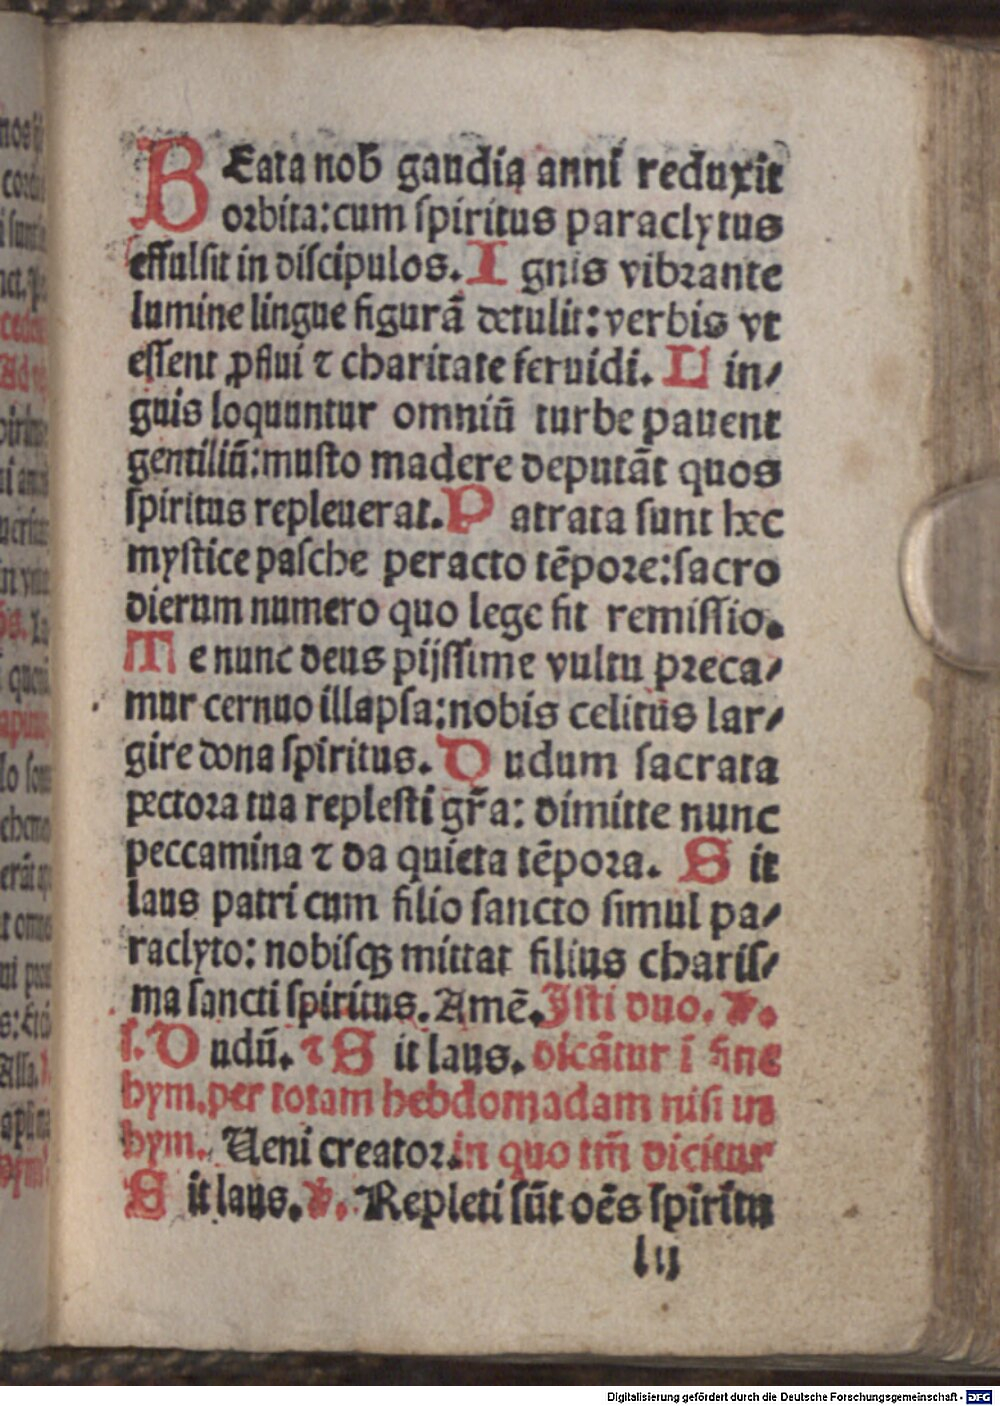 BEata nob̄ gaudia anni reduxit
orbita: cum ſpiritus paraclytus
effulſit in diſcipulos. I gnis vibrante
lumine lingue figurā detulit: verbis vt
eſſent ꝓflui ⁊ charitate feruidi. L in⸗
guis loquuntur omniū turbe pauent
gentiliū: muſto madere deputāt quos
ſpiritus repleuerat. P atrata ſunt hec
myſtice paſche peracto tēpore: ſacro
dierum numero quo lege fit remiſſio.
T e nunc deus pijſſime vultu preca⸗
mur cernuo illapſa: nobis celitus lar⸗
gire dona ſpiritus. D udum ſacrata
pectora tua repleſti gr̄a: dimitte nunc
peccamina ⁊ da quieta tēpora. S it
laus patri cum filio ſancto ſimul pa⸗
raclyto: nobiſqꝫ mittat filius chariſ⸗
ma ſancti ſpiritus. Amē. Iſti duo. v̄.
ſ. D udū. ⁊ S it laus. dicātur ī fine
hym. per totam hebdomadam niſi in
hym. Ueni creator. in quo tm̄ dicitur
S it laus. v̄. Repleti ſūt oēs ſpiritu
l ij
Digitalisierung gefördert durch die Deutsche Forschungsgemeinschaft - DFG